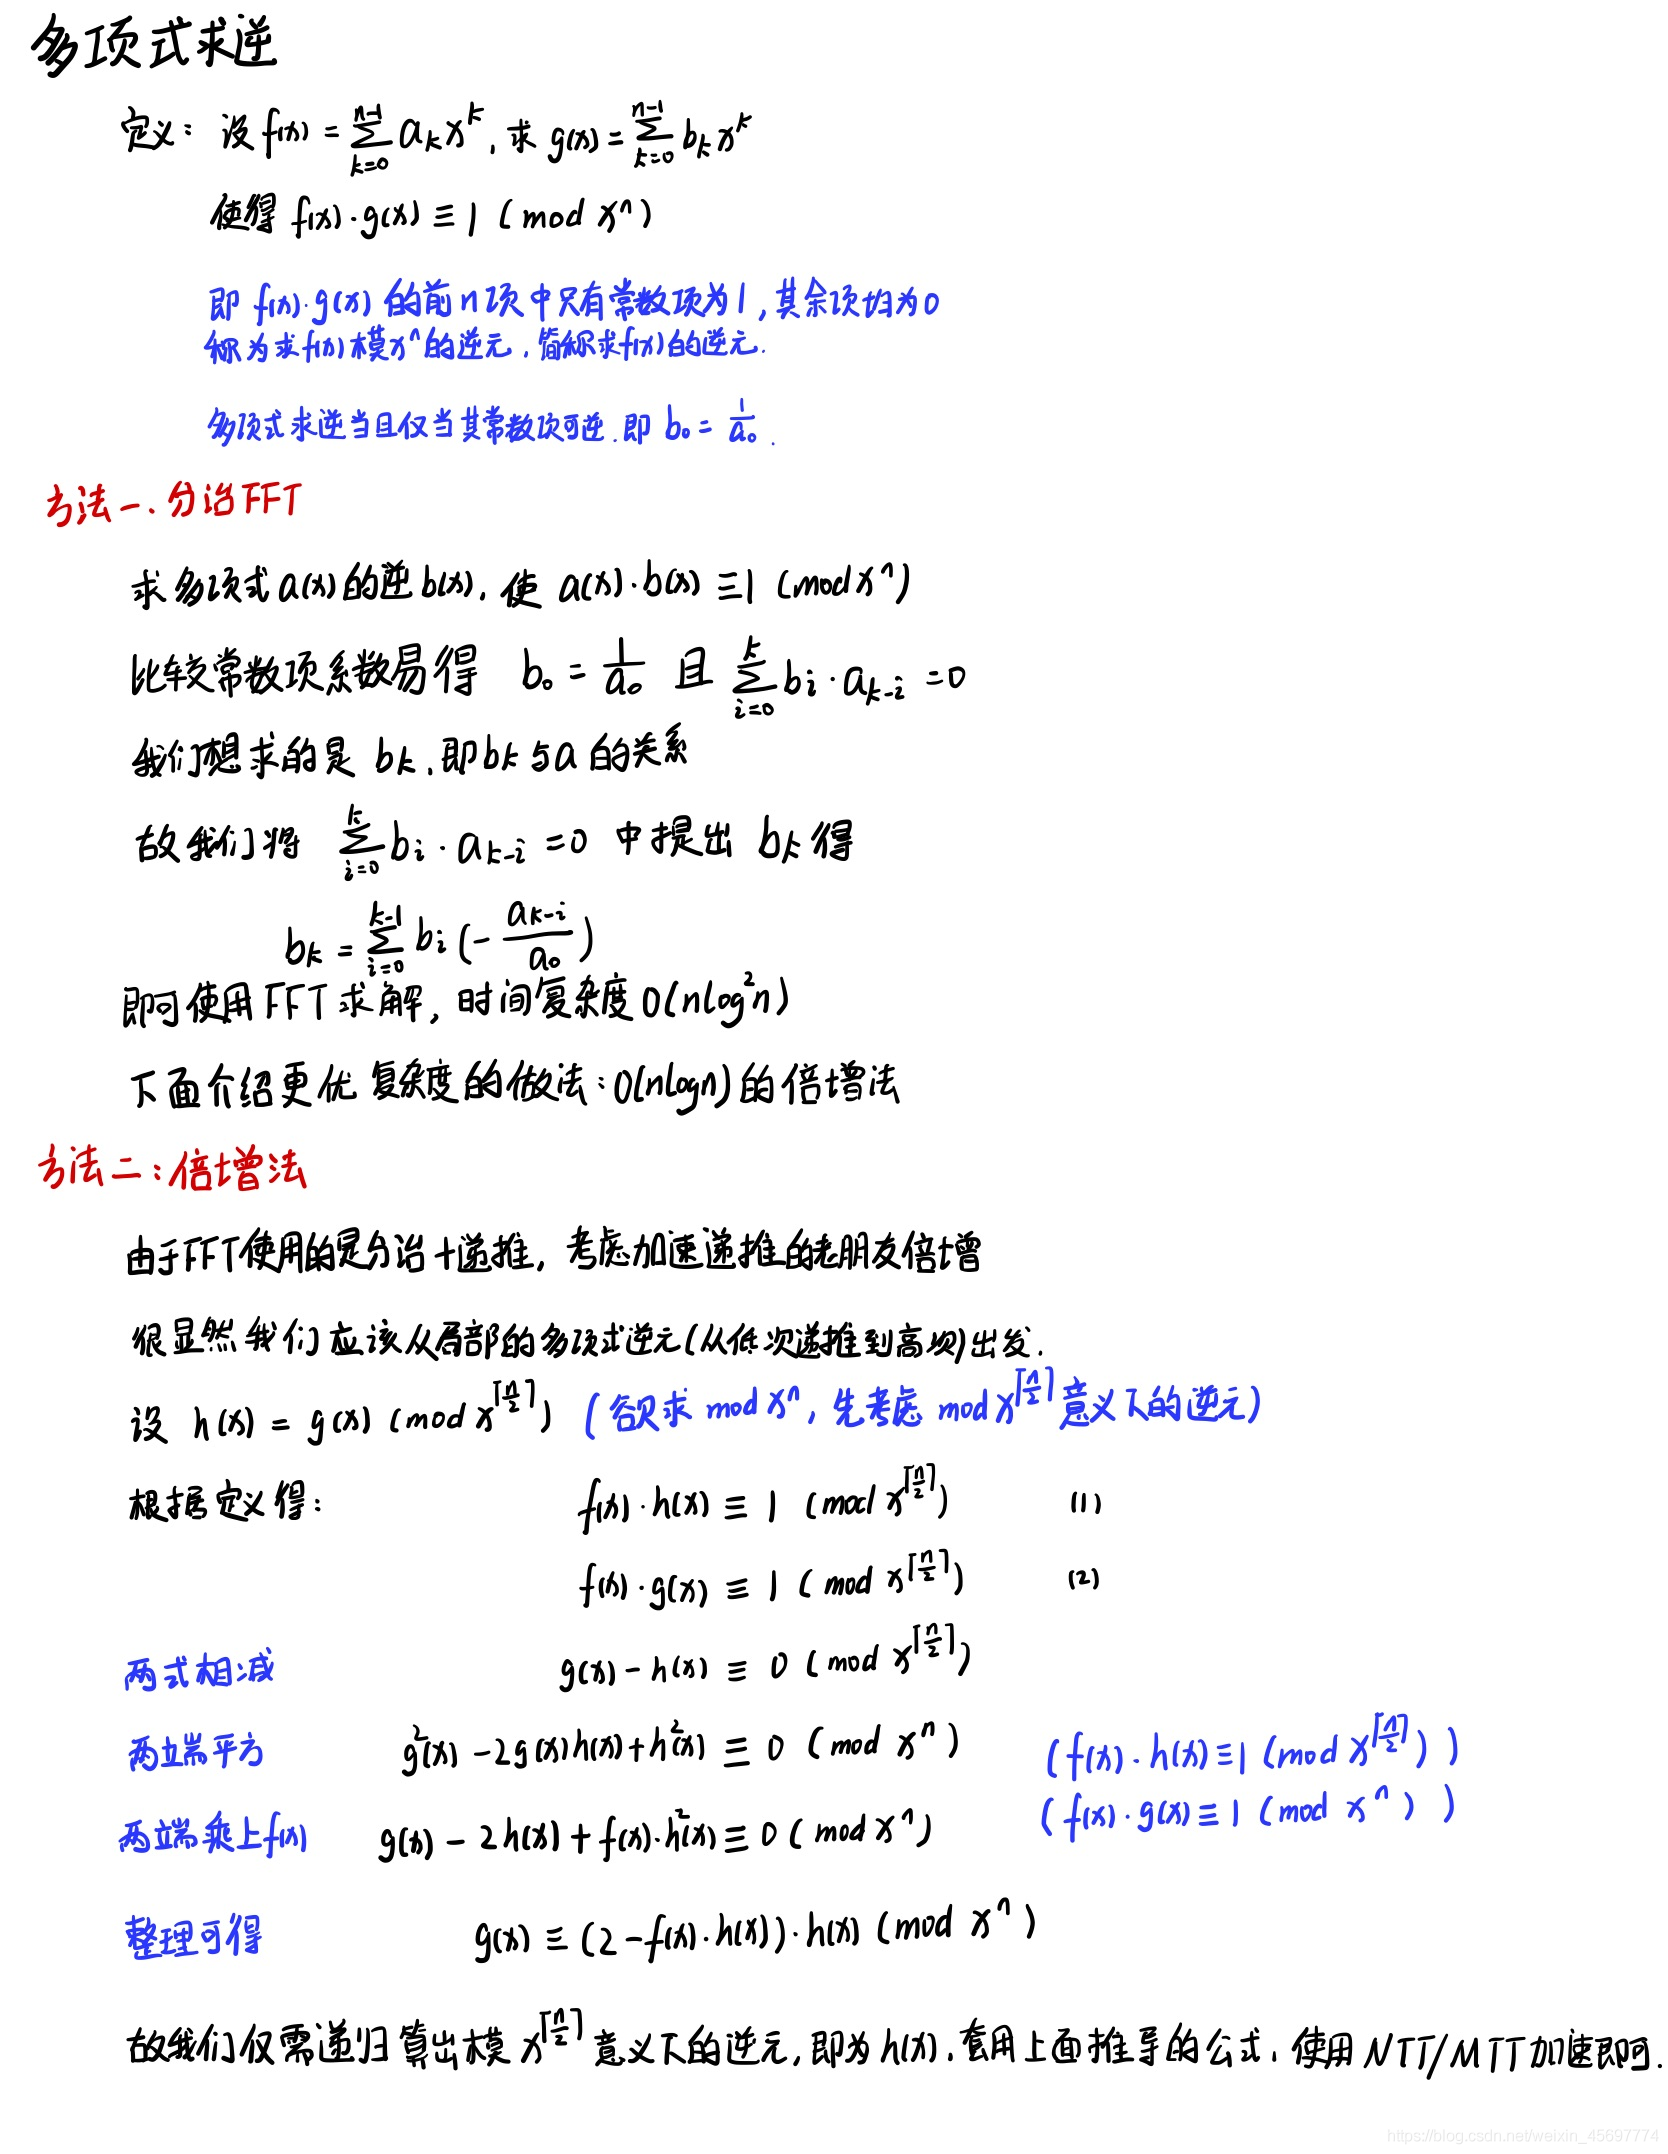 多项式求逆
定义：设 f(x) = \sum_{k=0}^{n-1} a_k x^k, 求 g(x) = \sum_{k=0}^{n-1} b_k x^k
使得 f(x)·g(x) ≡ 1 (mod x^n)
即 f(x)·g(x) 的前n项中只有常数项为1, 其余项均为0
称为求f(x)模x^n的逆元, 简称求f(x)的逆元.
多项式求逆当且仅当其常数项可逆. 即 b_0 = \frac{1}{a_0}.
方法一. 分治FFT
求多项式a(x)的逆b(x), 使 a(x)·b(x) ≡ 1 (mod x^n)
比较常数项系数易得 b_0 = \frac{1}{a_0} 且 \sum_{i=0}^{k} b_i · a_{k-i} = 0
我们想求的是 b_k, 即b_k与a的关系
故我们将 \sum_{i=0}^{k} b_i · a_{k-i} = 0 中提出 b_k 得
b_k = \sum_{i=0}^{k-1} b_i (-\frac{a_{k-i}}{a_0})
即可使用FFT求解, 时间复杂度O(nlog^2n)
下面介绍更优复杂度的做法: O(nlogn)的倍增法
方法二: 倍增法
由于FFT使用的是分治+递推, 考虑加速递推的老朋友倍增
很显然我们应该从局部的多项式逆元(从低次递推到高项)出发.
设 h(x) = g(x) (mod x^{⌈\frac{n}{2}⌉}) (欲求 mod x^n, 先考虑 mod x^{⌈\frac{n}{2}⌉}意义下的逆元)
根据定义得: f(x)·h(x) ≡ 1 (mod x^{⌈\frac{n}{2}⌉}) (1)
f(x)·g(x) ≡ 1 (mod x^{⌈\frac{n}{2}⌉}) (2)
两式相减 g(x) - h(x) ≡ 0 (mod x^{⌈\frac{n}{2}⌉})
两端平方 g^2(x) - 2g(x)h(x) + h^2(x) ≡ 0 (mod x^n) (f(x)·h(x) ≡ 1 (mod x^{⌈\frac{n}{2}⌉}))
两端乘上f(x) g(x) - 2h(x) + f(x)·h^2(x) ≡ 0 (mod x^n) (f(x)·g(x) ≡ 1 (mod x^n))
整理可得 g(x) ≡ (2 - f(x)·h(x))·h(x) (mod x^n)
故我们仅需递归算出模 x^{⌈\frac{n}{2}⌉} 意义下的逆元, 即为 h(x), 套用上面推导的公式, 使用NTT/MTT加速即可.
https://blog.csdn.net/weixin_45697774